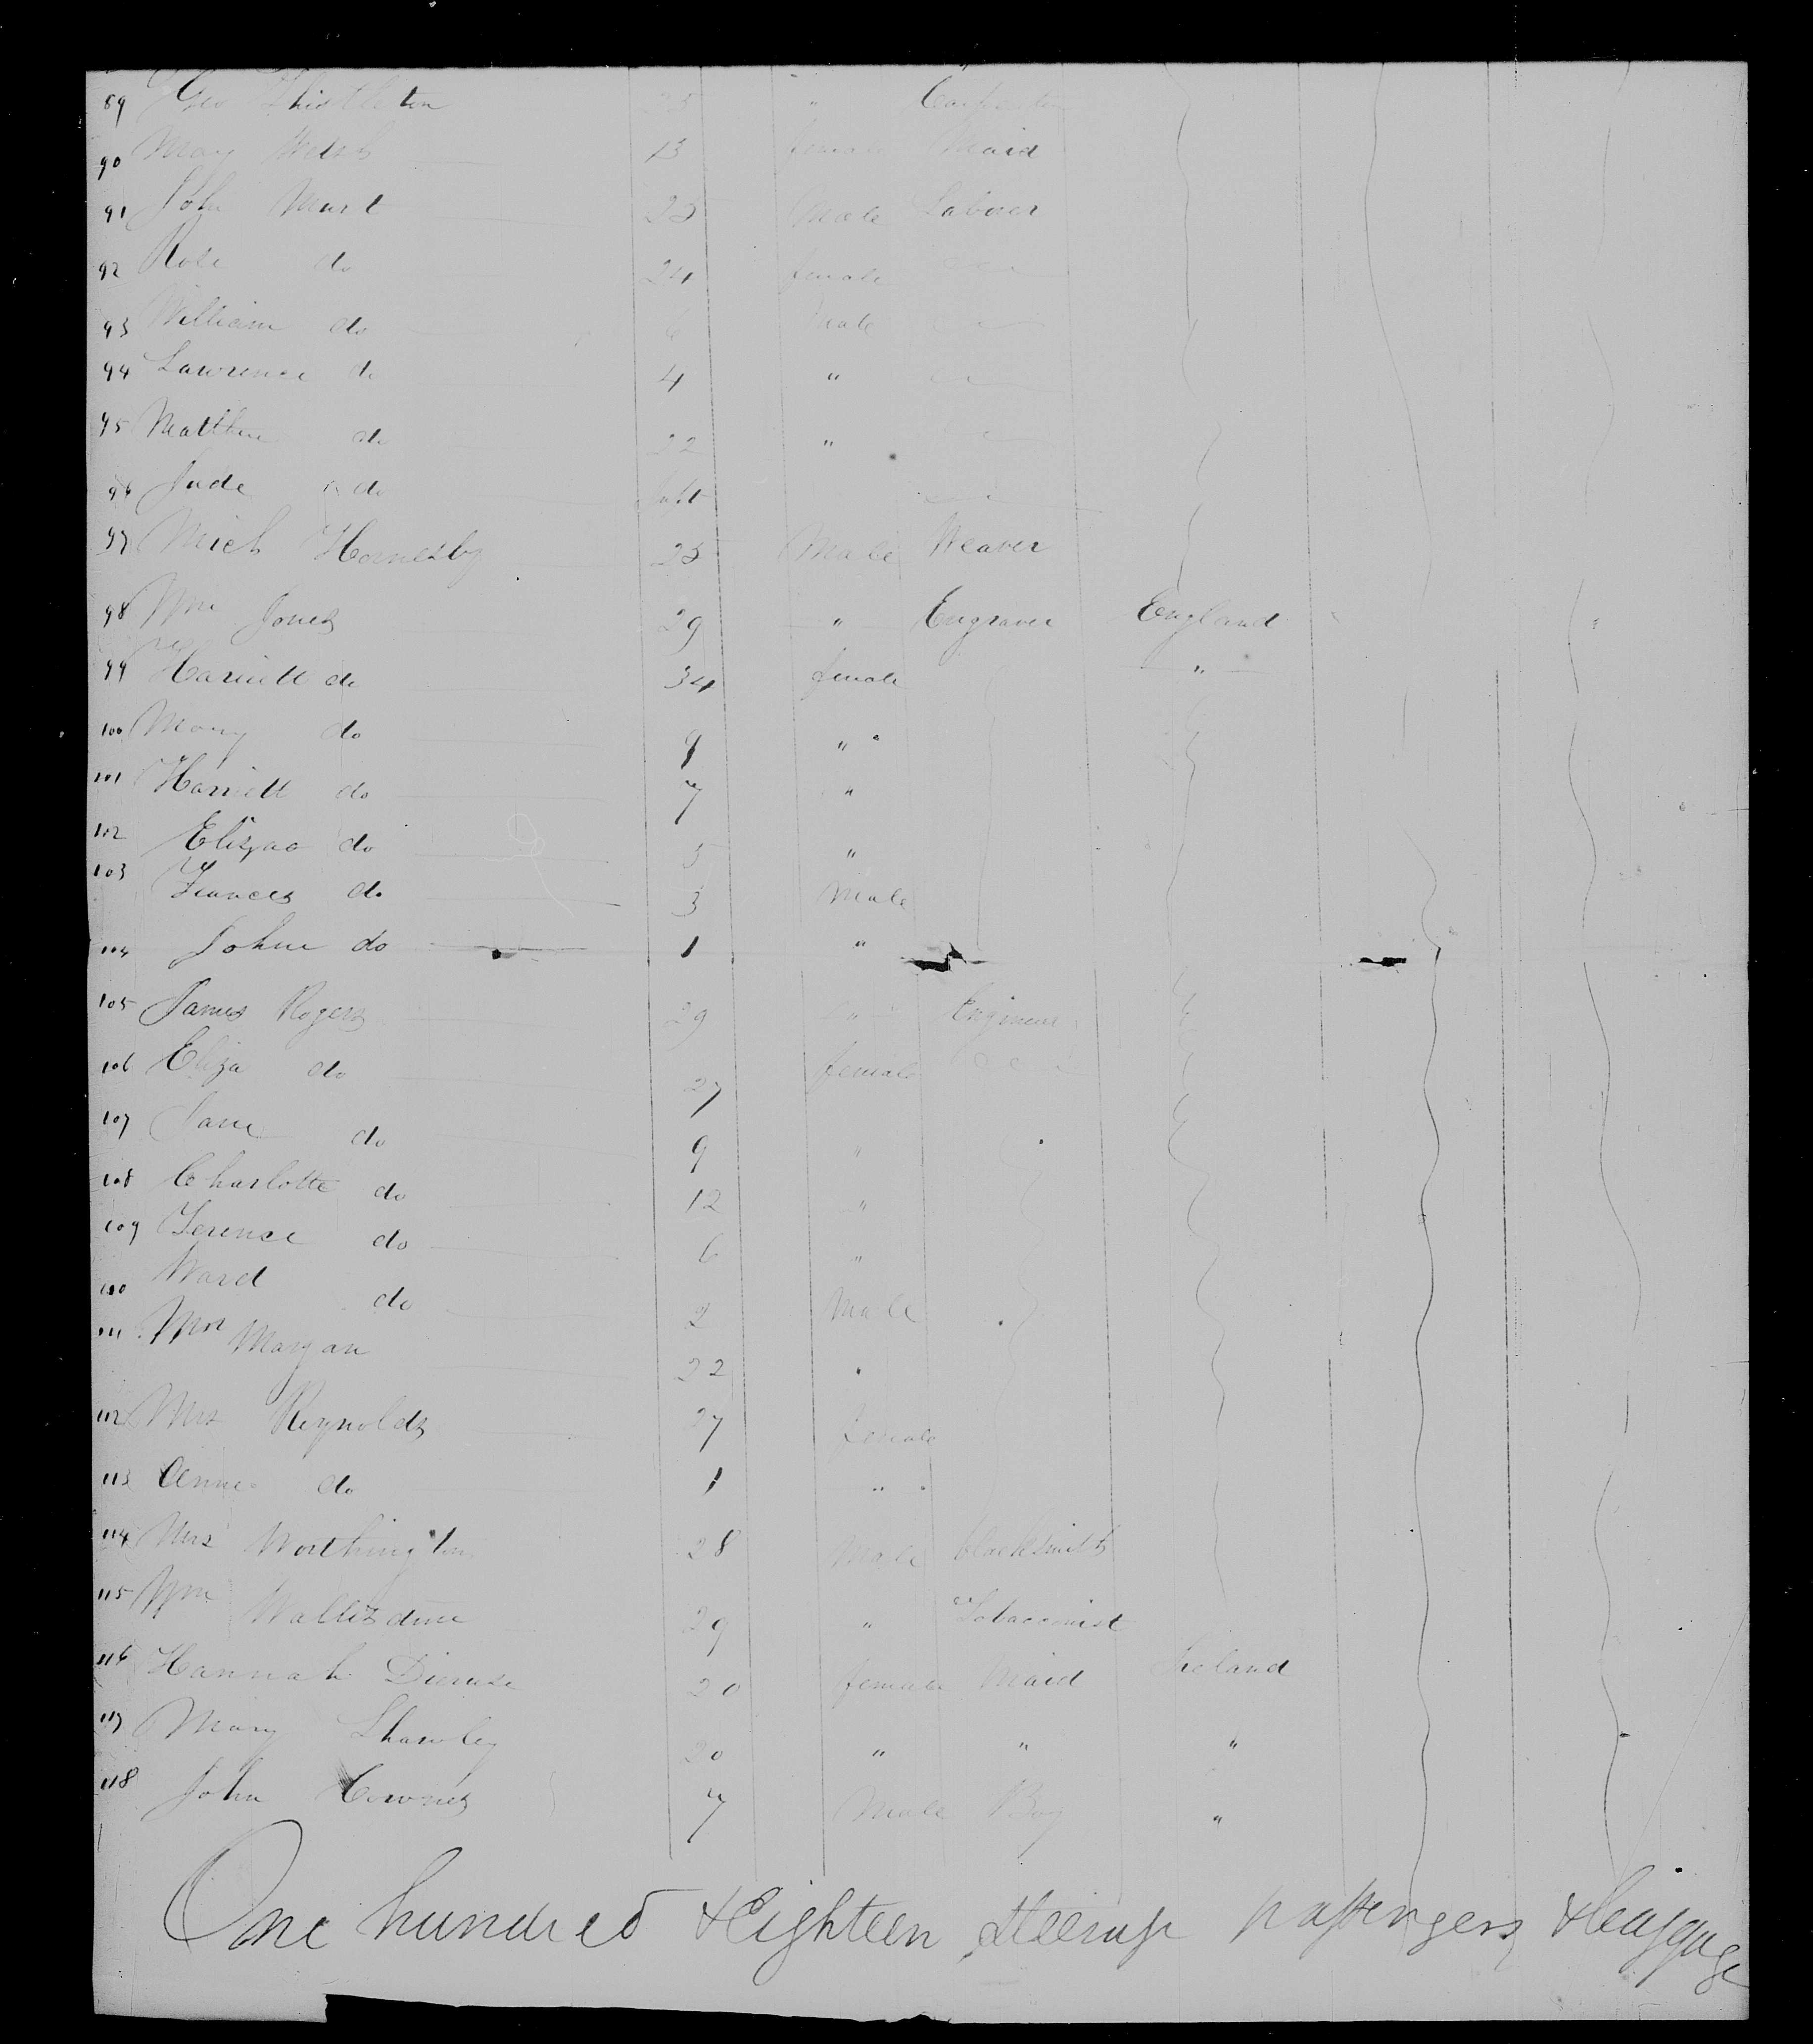 89 Geo Thistleton 25 " Carpenter
90 May Welsh 13 female Maid
91 John Murt 25 Male Labourer
92 Rose do 24 female
93 William do 6 Male
94 Lawrence do 4 "
95 Matthew do 22 "
96 Jude do Inft
97 Mich Hornesby 25 Male Weaver
98 Wm Jones 29 " Engraver England
99 Harriett do 34 female "
100 Mary do 9 "
101 Harriett do 7 "
102 do 5 "
103 Frances do 3 Male
104 John do 1 "
105 James Rogers 29 " Engineer
106 Eliza do 27 female
107 Jane do 9 "
108 Charlotte do 12 "
109 Terense do 6 "
110 Ward do 2 Male
111 Morgan 22 "
112 Mrs Reynolds 27 female
113 Anne do 1 "
114 Mrs Worthington 28 Male blacksmith
115 Wm 29 " Tobacconist
116 Hannah 20 female Maid Ireland
117 Mary 20 " " "
118 John 7 Male Boy "
One hundred & Eighteen Steerage passengers & baggage